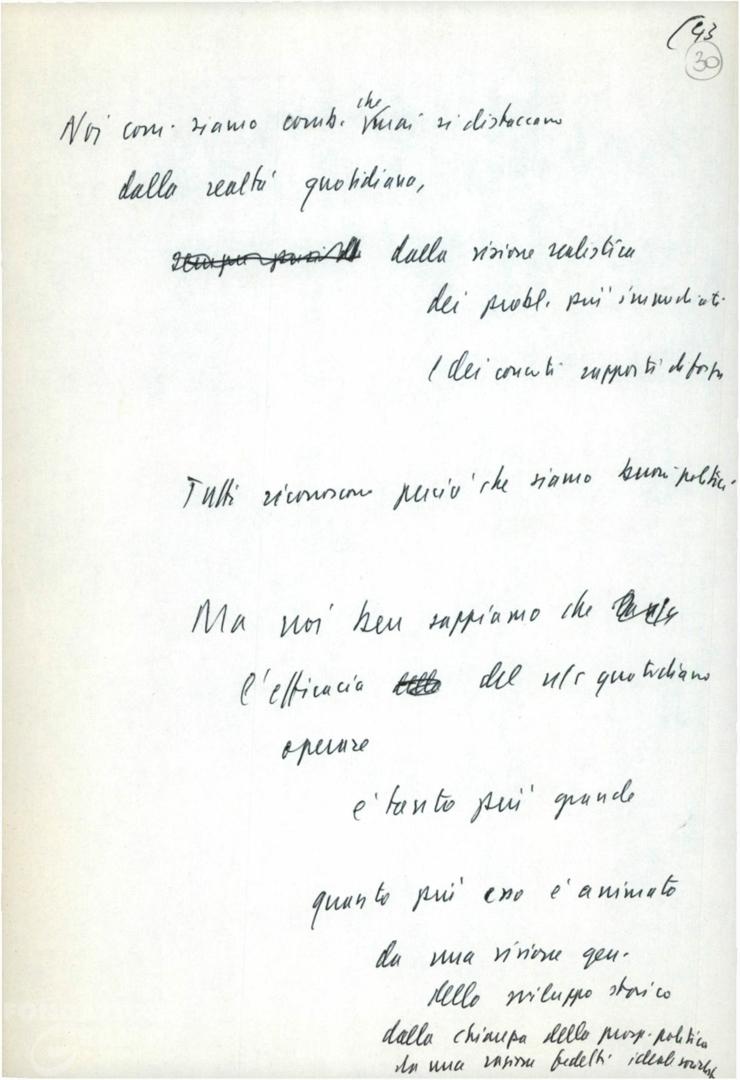 (43
30
che
Noi com. siamo comb. mai si distaccano
dalla realtà quotidiana,
dalla visione realistica
dei probl. più immediati
e dei concreti rapporti di forza
Tutti riconoscono perciò che siamo buoni politici.
Ma noi ben sappiamo che
l'efficacia del ns quotidiano
operare
è tanto più grande
quanto più esso è animato
da una visione gen.
dello sviluppo storico
dalla chiarezza della prosp. politica
da una fedeltà ideali